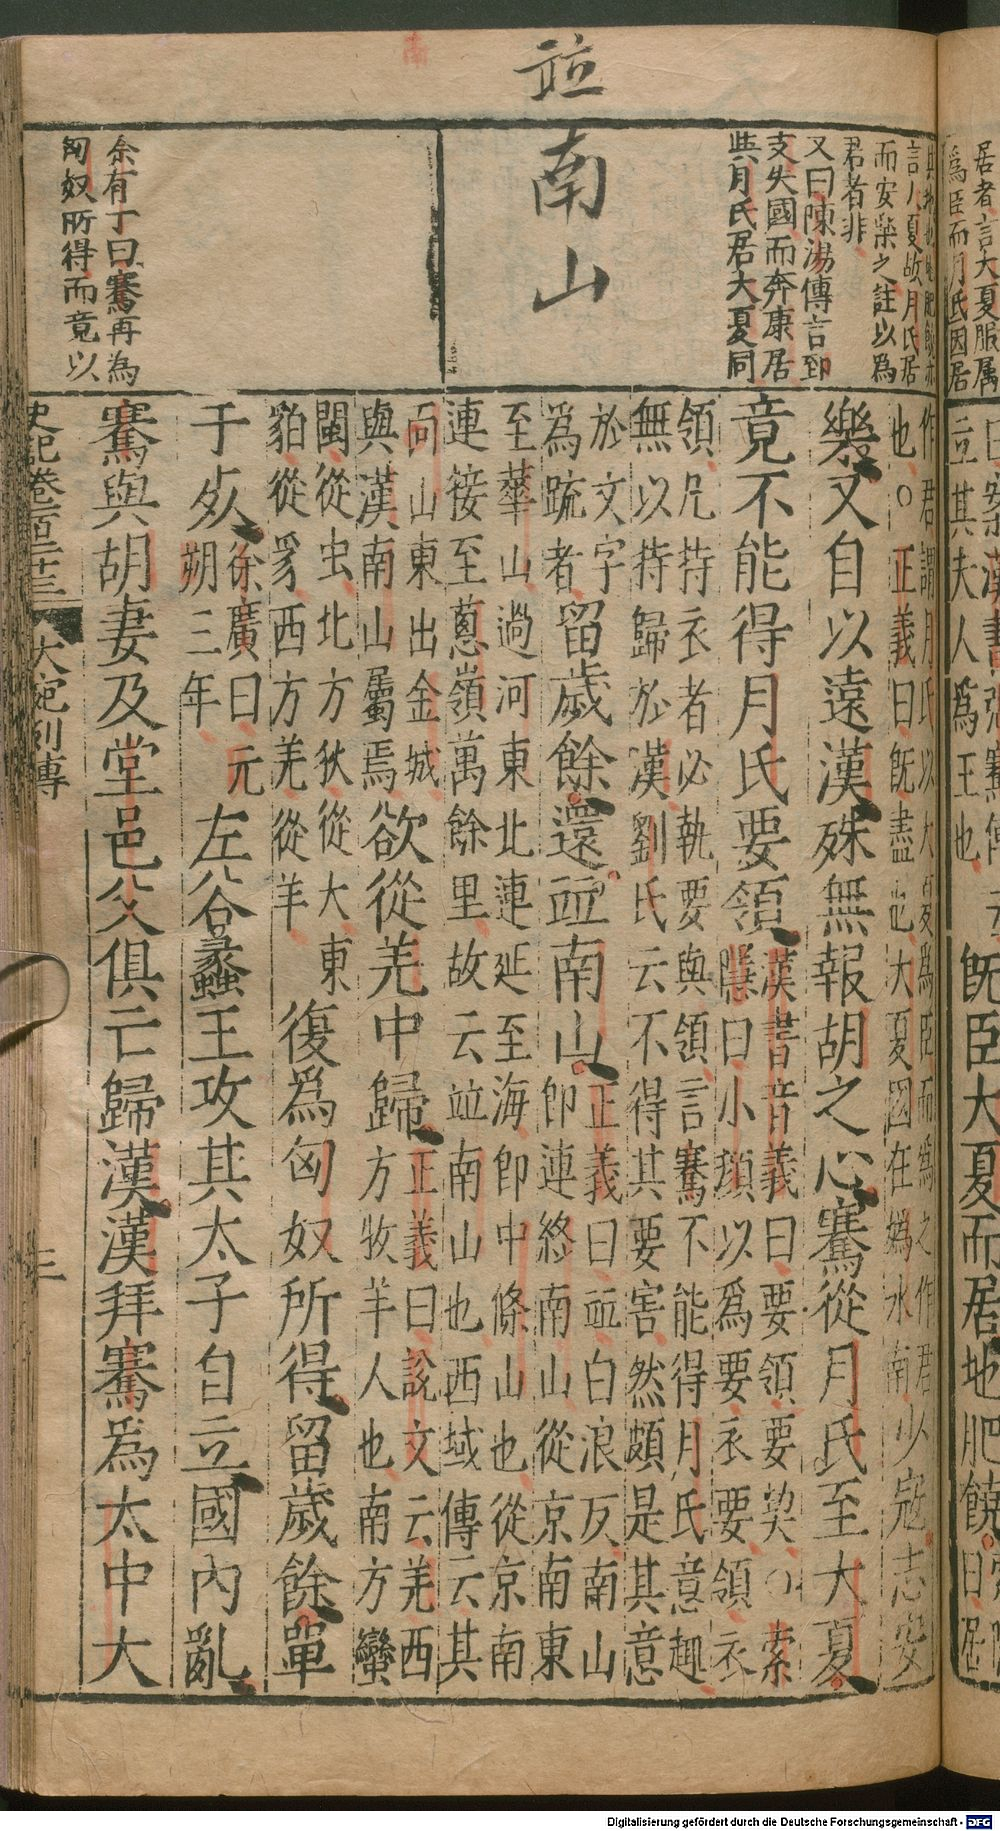 居者言大夏服属
為臣而月氏因居
言人夏故月氏居
而安樂之註以為
君者非
又曰陳湯傳言郅
支失國而奔康居
與月氏君大夏同
並
南山
余有丁曰騫再為
匈奴所得而竟以
立其夫人為王也
既臣大夏而居地肥饒
作君謂月氏以大夏為臣而為之作君
也○正義曰既盡也大夏國在媯水南少寇志安
樂又自以遠漢殊無報胡之心騫從月氏至大夏
竟不能得月氏要領
漢書音義曰要領要契○索
隱曰小顔以為要衣要領衣
領凡持衣者必執要與領言騫不能得月氏意趣
無以持歸於漢劉氏云不得其要害然頗是其意
於文字
為疏者
留歲餘還並南山
正義曰並白浪反南山
即連終南山從京南東
至華山過河東北連延至海即中條山也從京南
連接至蔥嶺萬餘里故云並南山也西域傳云其
南山東出金城
與漢南山屬焉
欲從羌中歸
正義曰說文云羌西
方牧羊人也南方蠻
閩從虫北方狄從犬東
貊從豸西方羌從羊
復為匈奴所得留歲餘單
于死
徐廣曰元
朔三年
左谷蠡王攻其太子自立國內亂
騫與胡妻及堂邑父俱亡歸漢漢拜騫為太中大
史記卷一百二十三
大宛列傳
三
Digitalisierung gefördert durch die Deutsche Forschungsgemeinschaft - DFG